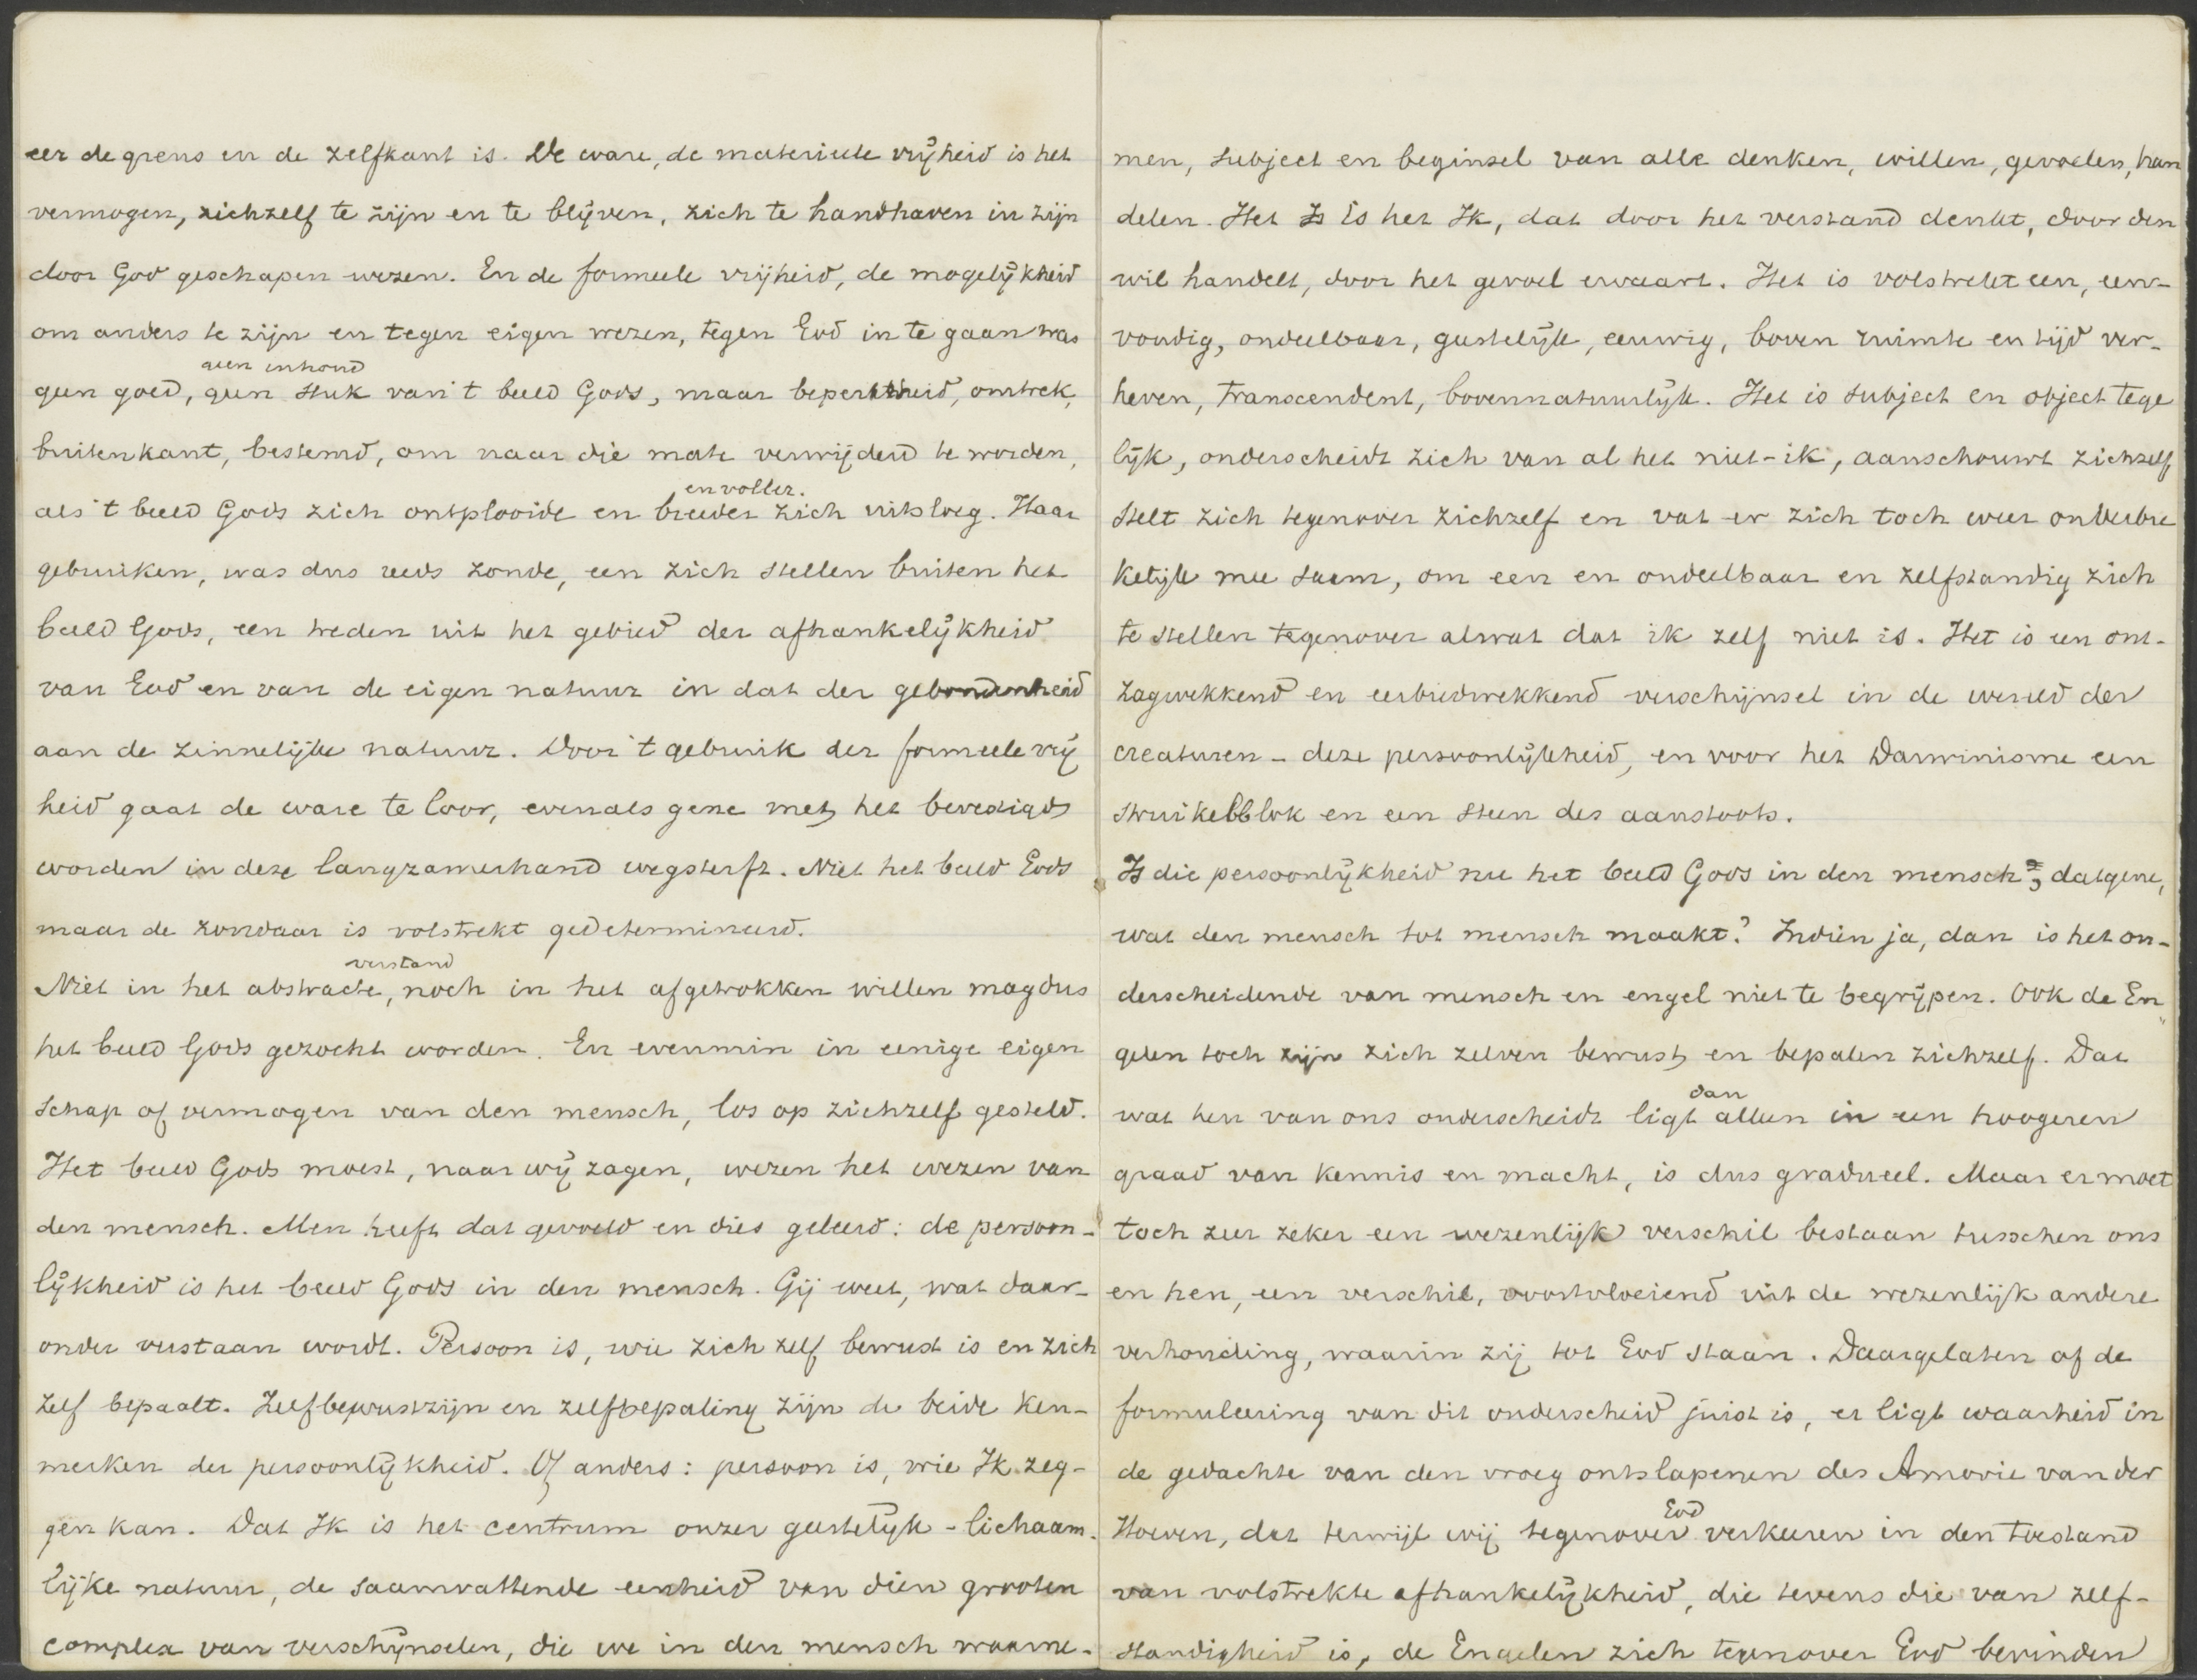 eer de grens en de zelfkant is. De ware, de materieele vrijheid is het
vermogen, zichzelf te zijn en te blijven, zich te handhaven in zijn
door God geschapen wezen. En de formeele vrijheid, de mogelijkheid
om anders te zijn en tegen eigen wezen, tegen God in te gaan was
geen inhoud
geen goed, geen stuk van 't beeld Gods, maar beperktheid, omtrek,
buitenkant, bestemd, om naar die mate verwijderd te worden,
en voller.
als 't beeld Gods zich ontplooide en breeder zich uitsloeg. Haar
gebruiken, was dus reeds zonde, een zich stellen buiten het
beeld Gods, een treden uit het gebied der afhankelijkheid
van God en van de eigen natuur in dat der gebondenheid
aan de zinnelijke natuur. Door 't gebruik der formeele vrij
heid gaat de ware te loor, evenals gene met het bevestigd
worden in deze langzamerhand wegsterft. Niet het beeld Gods
maar de zondaar is volstrekt gedetermineerd.
verstand
Niet in het abstracte, noch in het afgetrokken willen mag dus
het beeld Gods gezocht worden. En evenmin in eenige eigen
schap of vermogen van den mensch, los op zichzelf gesteld.
Het beeld Gods moest, naar wij zagen, wezen het wezen van
den mensch. Men heeft dat gevoeld en dies geleerd: de persoon-
lijkheid is het beeld Gods in den mensch. Gij weet, wat daar-
onder verstaan wordt. Persoon is, wie zich zelf bewust is en zich
zelf bepaalt. Zelfbewustzijn en zelfbepaling zijn de beide ken-
merken der persoonlijkheid. Of anders: persoon is, wie Ik zeg-
gen kan. Dat Ik is het centrum onzer geestelijk-lichaam-
lijke natuur, de saamvattende eenheid van dien grooten
complex van verschijnselen, die we in den mensch waarne-
men, subject en beginsel van alle denken, willen, gevoelen, han
delen. Het Is is het Ik, dat door het verstand denkt, door den
wil handelt, door het gevoel ervaart. Het is volstrekt een, een-
voudig, ondeelbaar, geestelijk, eeuwig, boven ruimte en tijd ver-
heven, transcendent, bovennatuurlijk. Het is subject en object tege
lijk, onderscheidt zich van al het niet-ik, aanschouwt zichzelf
stelt zich tegenover zichzelf en vat er zich toch weer onverbre
kelijk mee saam, om een en ondeelbaar en zelfstandig zich
te stellen tegenover alwat dat ik zelf niet is. Het is een ont-
zagwekkend en eerbiedwekkend verschijnsel in de wereld der
creaturen - deze persoonlijkheid, en voor het Darwinisme een
struikelblok en een steen des aanstoots.
Is die persoonlijkheid nu het beeld Gods in den mensch, datgene,
wat den mensch tot mensch maakt? Indien ja, dan is het on-
derscheidende van mensch en engel niet te begrijpen. Ook de En
gelen toch zijn zich zelven bewust, en bepalen zichzelf. Dat
dan
wat hen van ons onderscheidt ligt alleen in een hoogeren
graad van kennis en macht, is dus gradueel. Maar er moet
toch zeer zeker een wezenlijk verschil bestaan tusschen ons
en hen, een verschil, voortvloeiend uit de wezenlijk andere
verhouding, waarin zij tot God staan. Daargelaten of de
formuleering van dit onderscheid juist is, er ligt waarheid in
de gedachte van den vroeg ontslapenen des Amorie van der
God
Hoeven, dat terwijl wij tegenover verkeeren in den toestand
van volstrekte afhankelijkheid, die tevens die van zelf-
standigheid is, de Engelen zich tegenover God bevinden